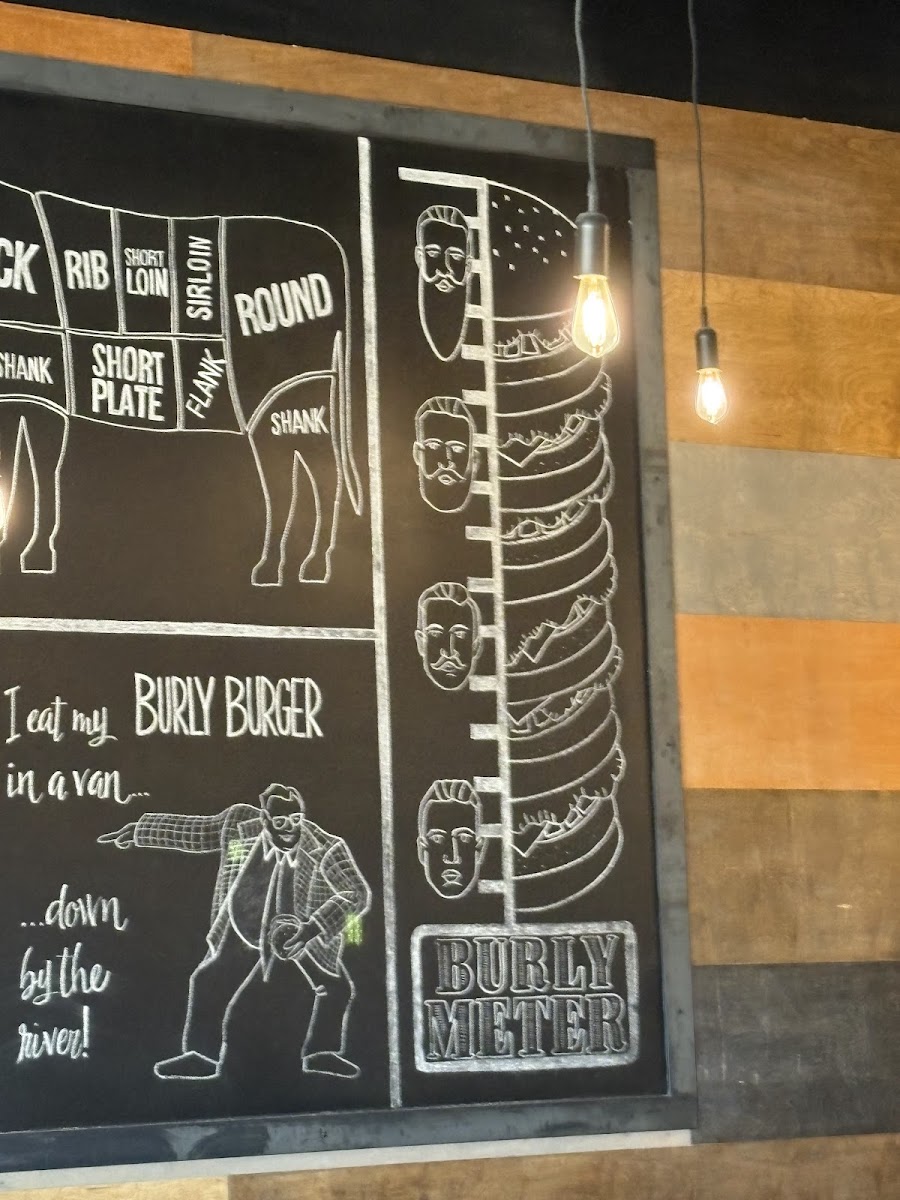 CK
RIB
SHORT
LOIN
SIRLOIN
ROUND
SHANK
SHORT
PLATE
FLANK
SHANK
I eat my BURLY BURGER
in a van...
...down
by the
river!
BURLY
METER